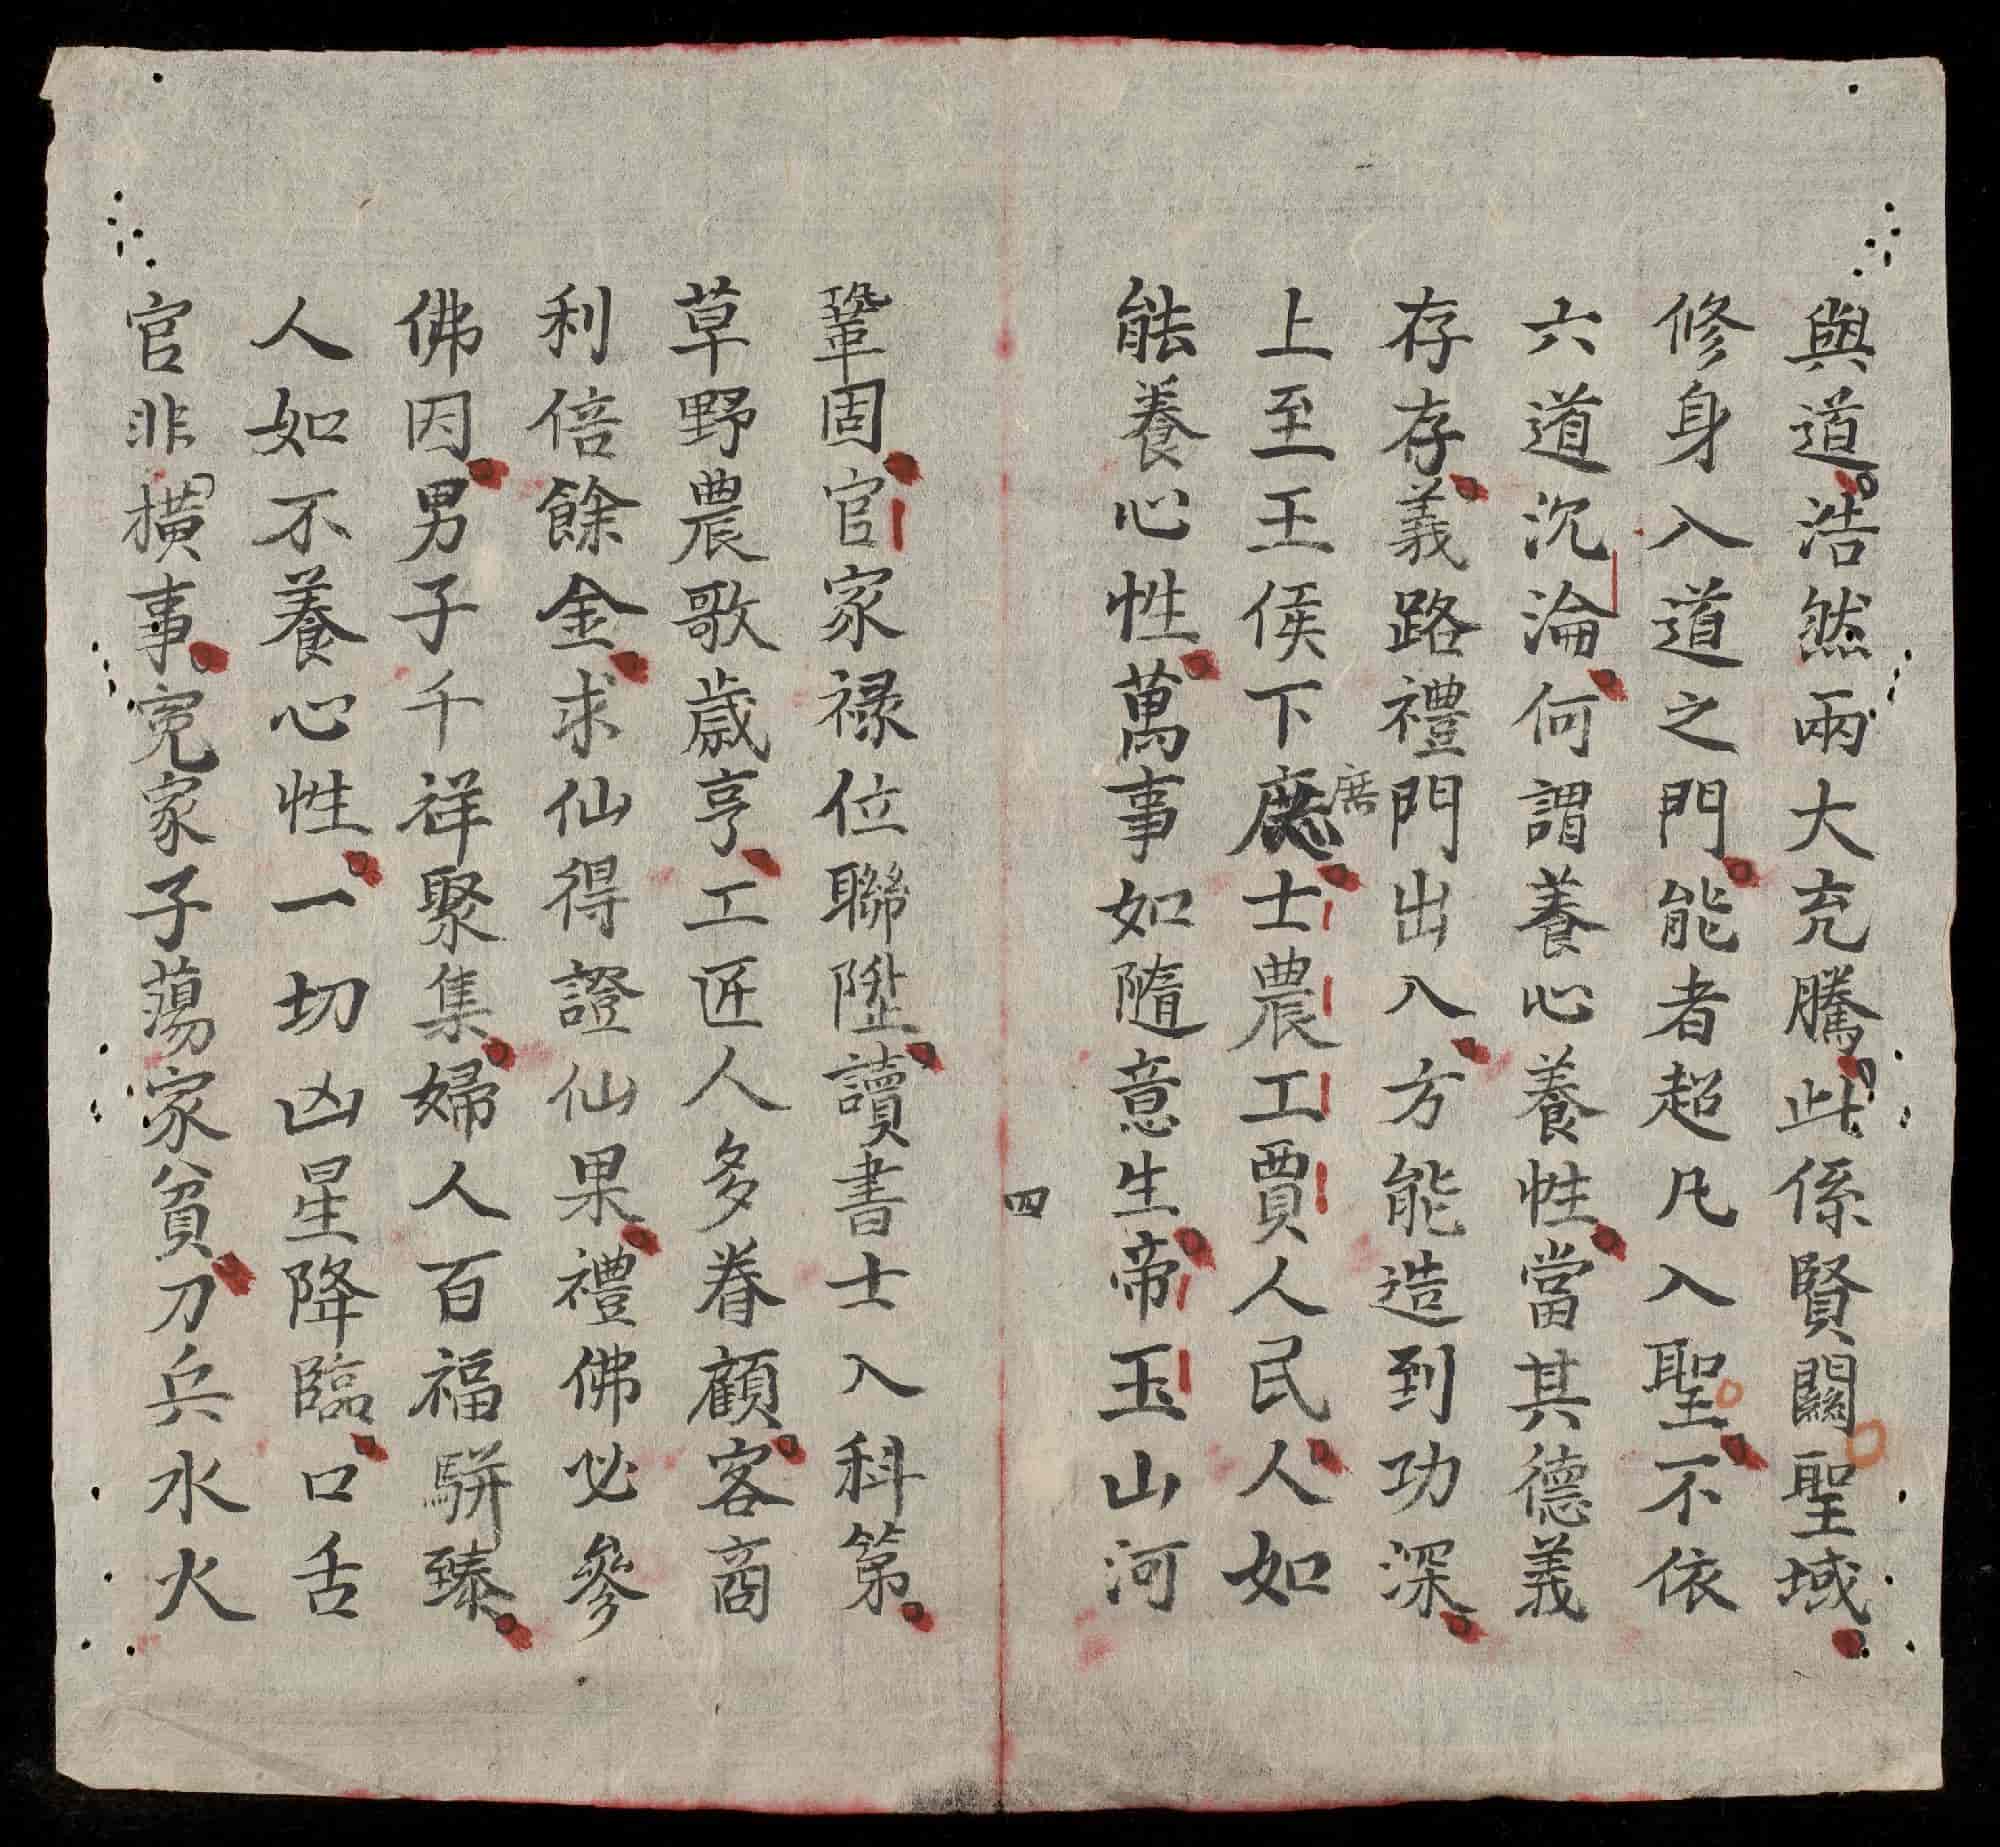 與道浩然兩大充騰此係賢關聖域
修身入道之門能者超凡入聖不依
六道沉淪何謂養心養性當其德義
存存義路禮門出入方能造到功深
上至王侯下庶士農工賈人民人如
庶
能養心性萬事如隨意生帝玉山河
四
鞏固官家祿位聯陞讀書士入科第
草野農歌歲亨工匠人多眷顧客商
利倍餘金求仙得證仙果禮佛必參
佛因男子千祥聚集婦人百福駢臻
人如不養心性一切凶星降臨口舌
官非橫事寃家子蕩家貧刀兵水火